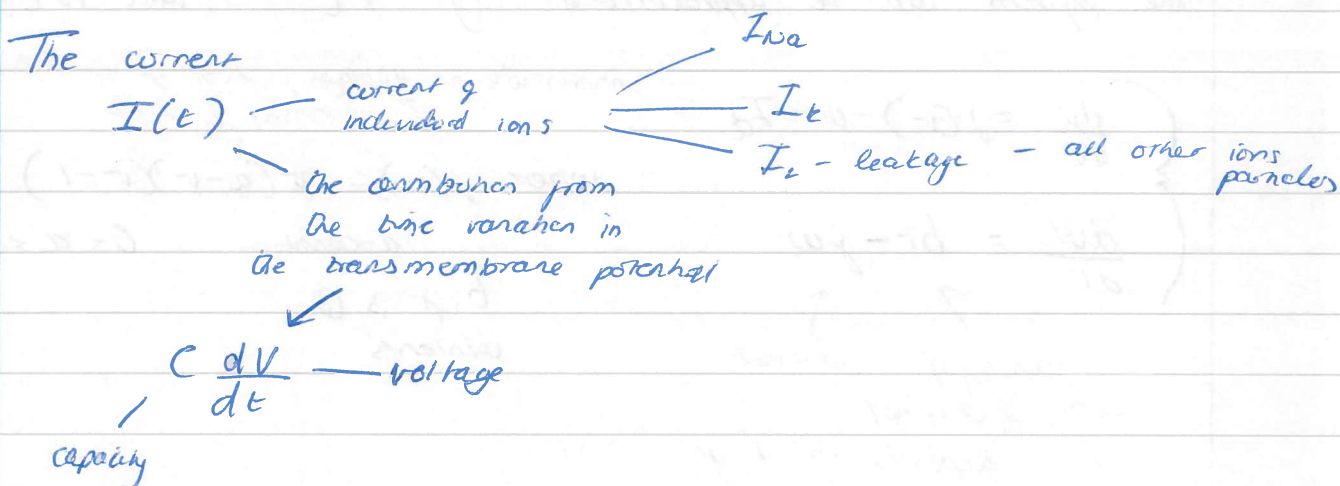 The current
I(t) — current of individual ions
I_Na
I_k
I_L - leakage - all other ions particles
the contribution from
the time variation in
the transmembrane potential
C dV/dt — voltage
capacity